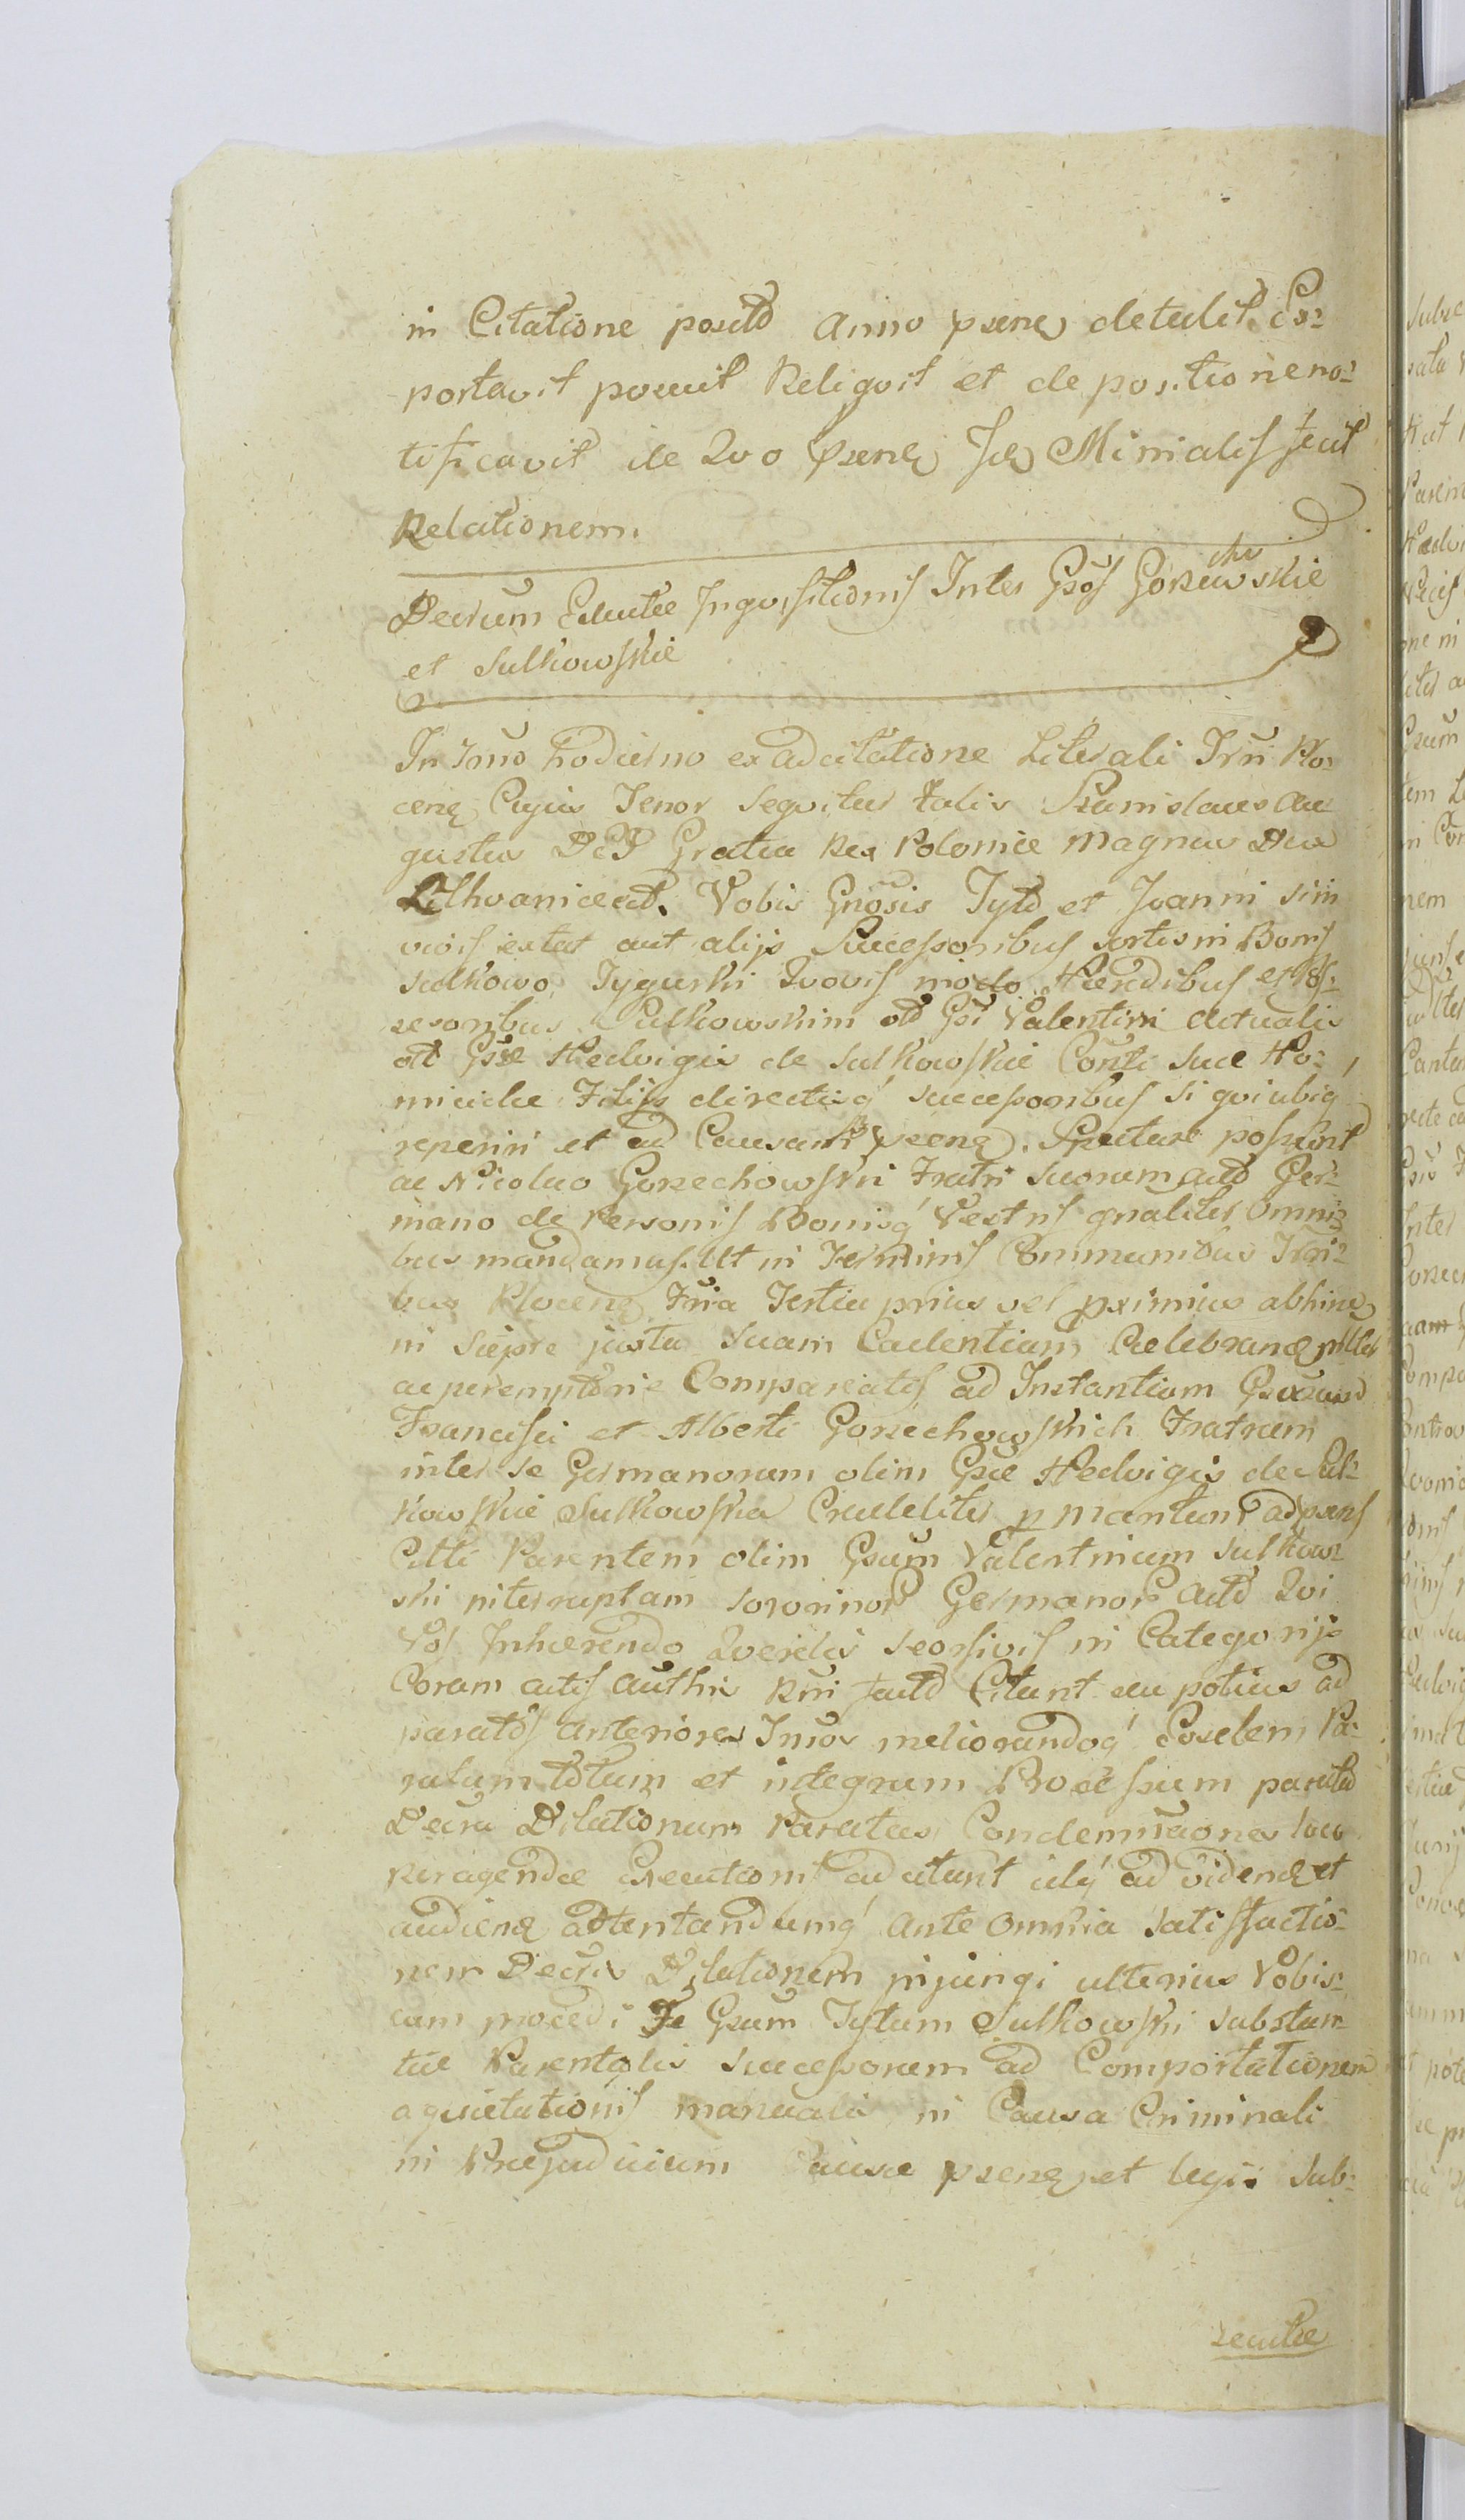 in Citatione posito Anno psene detulit Ex-
portavit posuit Reliqvit et de positione no-
tificavit de Qvo psene Jde Minialis fecit
Relationem.
Decrum Eductae Inqvisitionis Inter Gsos Gorzechowskie
et Sulkowskie
In Tmo hodierno ex adcitatione Literali Trii Plo-
cene Cujus Tenor Seqvitur talis Stanislaus Au
gustus DeI Gratia Rex Poloniae Magnus Dux
Lithvaniae etc. Vobis Gnosis Tyto et Joanni sim
vivis extat aut alijs Successoribus sortis in Bonis
Sulkowo Tygurki Qvovis modo Haeredibus et Pos-
sesoribus Sulkowskim olim Gsi Valentini actualis
olim Gsae Hedvigis de Sulkowskie Conti suae Ho-
micidae Filijs directisq successoribus si qvi ubiq
reperiri et ad Causam psene Spectare possunt
ac Nicolao Gorzechowski Fratri Suorum Actd Ger-
mano de Personis Bonisq Vestris gnaliter Omni-
bus mandamus. Ut in Terminis Communibus Trii-
bus Plocene Fria Tertia prius vel pximius abhinc
in Siepre justa Suam Cadentiam Caelebrand pnlter
ac peremptorie Compareatis ad Instantiam Gsorum
Francisci et Alberti Gorzechowskich Fratrum
inter se Germanorum olim Gsae Hedvigis de Sul-
kowskie Sulkowska Crudeliter p maritum ad psens
Citti Parentem olim Gsum Valentinum Sulkow-
ski interemptam Sororinor Germanor Actd Qvi
Vos Inhaerendo Qverelis seorsivis in Categorijs
Coram actis Authis Rni factd Citant seu potius ad
paratos anteriores Tmos meliorandoq Eosdem Pa-
ratum totum et integrum Processum paritd
Decra Dilationum Paratas Condemnaones loco
peragendae Executionis adcitant idq ad vidend et
audiend adtentandumq Ante Omnia Satisfactio-
nem Decris Dilationem injungi ulterius Vobis-
cum procedi Te Gsum Tytum Sulkowski Substan-
tiae Parentalis Successorem ad Comportationem
aqvietationis manualis in Causa Criminali
in Praejudicium Causae psene et legis Sub-
secutae